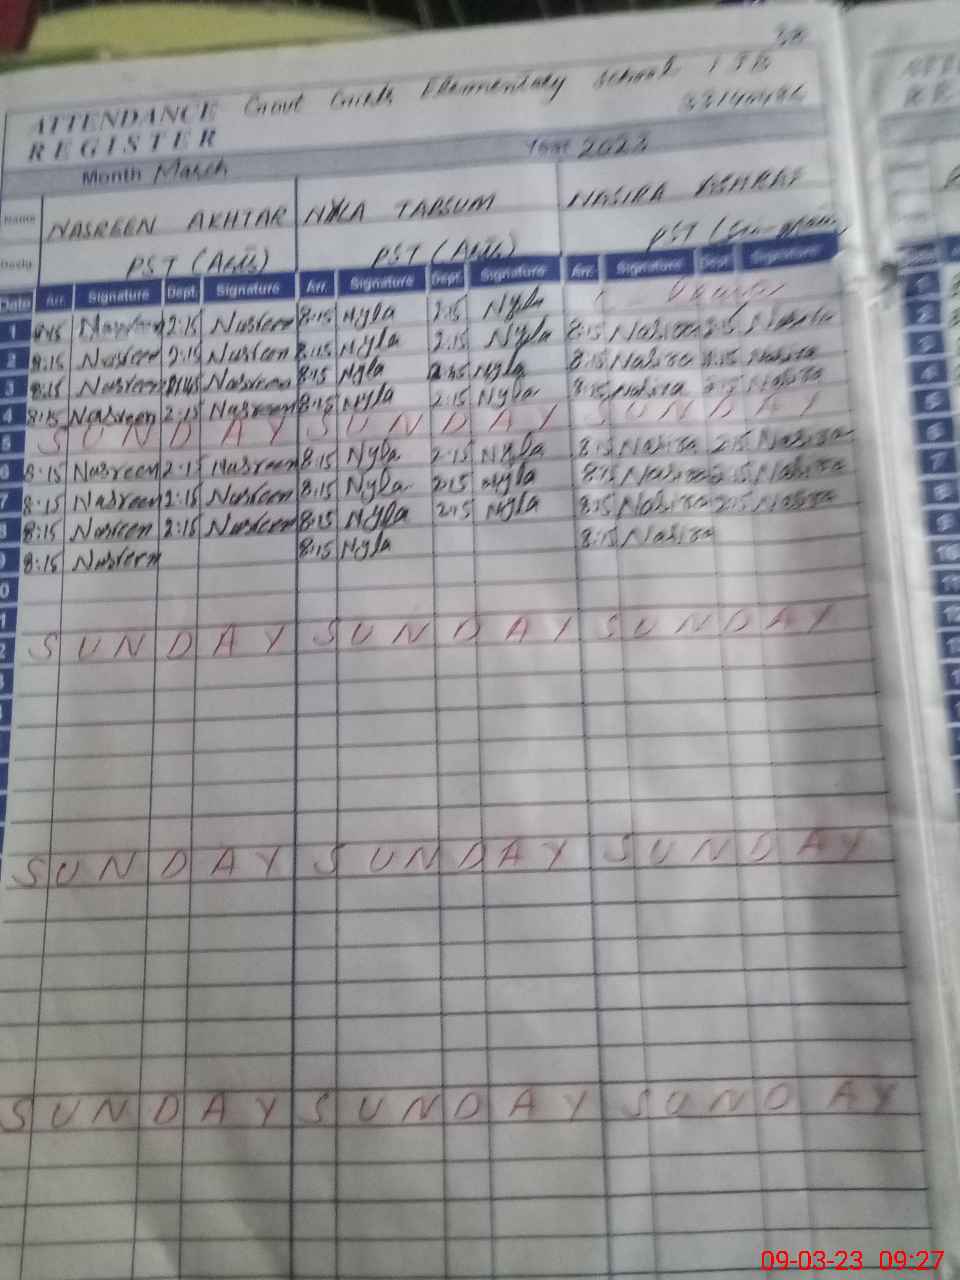 38
ATTENDANCE Govt Girls Elementary School
REGISTER
Month March Year 2023
Name NASREEN AKHTAR NYLA TABSUM NASIRA ASHRAF
Desig PST (Arts) PST (Arts) PST
Date Arr. Signature Dept. Signature Arr. Signature Dept. Signature Arr. Signature Dept. Signature
1 8:15 Nasreen 2:15 Nasreen 8:15 Nyla 2:15 Nyla
2 8:15 Nasreen 2:15 Nasreen 8:15 Nyla 2:15 Nyla 8:15 Nasira 2:15 Nasira
3 8:15 Nasreen Nasreen 8:15 Nyla Nyla 8:15 Nasira Nasira
4 8:15 Nasreen 2:15 Nasreen 8:15 Nyla 2:15 Nyla 8:15 Nasira Nasira
5 SUNDAY SUNDAY SUNDAY
6 8:15 Nasreen 2:15 Nasreen 8:15 Nyla 2:15 Nyla 8:15 Nasira 2:15 Nasira
7 8:15 Nasreen 2:15 Nasreen 8:15 Nyla 2:15 Nyla 8:15 Nasira 2:15 Nasira
8 8:15 Nasreen 2:15 Nasreen 8:15 Nyla 2:15 Nyla 8:15 Nasira 2:15 Nasira
9 8:15 Nasreen 8:15 Nyla 8:15 Nasira
0
1
2 SUNDAY SUNDAY SUNDAY
SUNDAY SUNDAY SUNDAY
SUNDAY SUNDAY SUNDAY
09-03-23 09:27